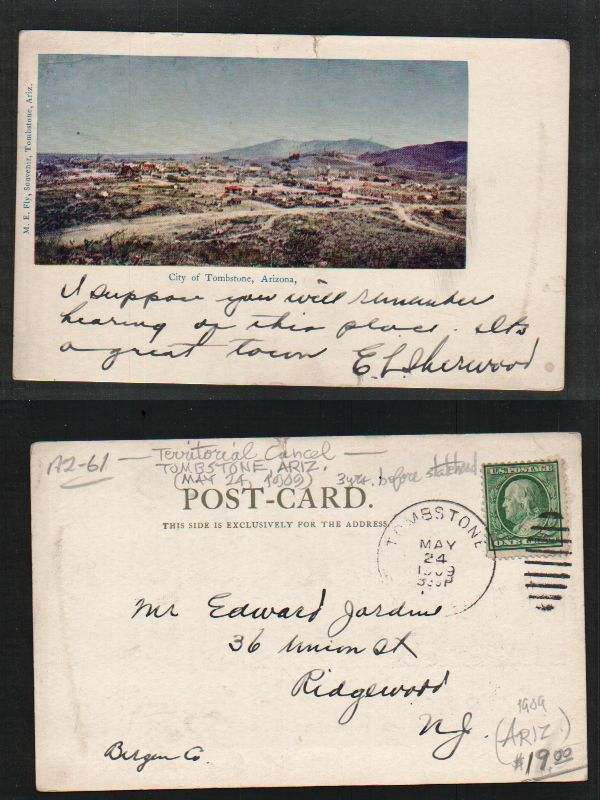 M. E. Fly, Souvenir, Tombstone, Ariz.
City of Tombstone, Arizona,
I suppose you will remember
hearing of this place. Its
a great town E L Sherwood
A2-61 — Territorial Cancel —
TOMBSTONE, ARIZ.
(MAY 24, 1909) 3 yrs. before statehood
POST-CARD.
THIS SIDE IS EXCLUSIVELY FOR THE ADDRESS.
U.S. POSTAGE
ONE
TOMBSTONE
MAY
24
1909
Mr Edward Jardine
36 Union St
Ridgewood
N.J.
Bergen Co.
1909
(ARIZ.)
$19.00